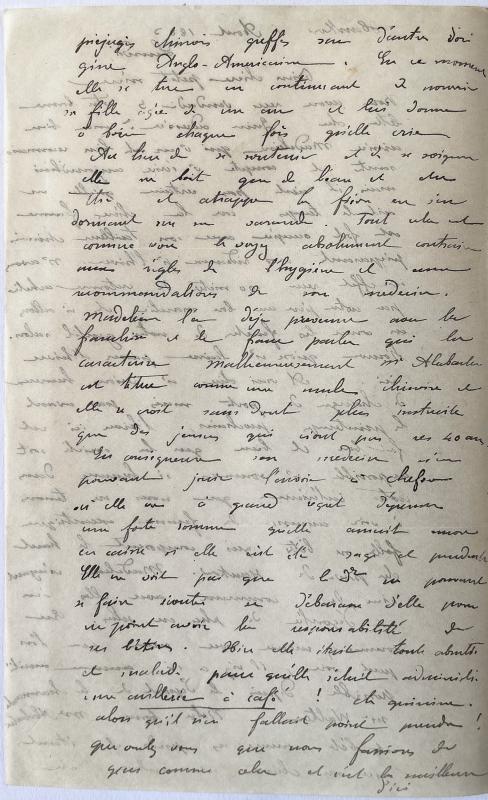 préjugés chinois greffés sur d'autres d'ori
gine Anglo-Américaine. En ce moment
elle se tue en continuant à nourrir
sa fille âgée de un an et lui donne
à boire chaque fois qu'elle crie
Au lieu de se soutenir et de se soigner
elle ne boit que de l'eau et du
thé et attrappe la fièvre en
dormant sur sa verandah. Tout cela est
comme vous le voyez absolument contraire
aux règles de l'hygiène et aux
recommandations de son médecin.
Madeleine l'a déjà prévenue avec la
franchise et le franc parler qui la
caractérise Malheureusement Me Alabaster
est têtue comme une mule chinoise et
elle se croit sans doute plus instruite
que des jeunes qui n'ont pas ses 40 ans.
En conséquence son médecin n'en
pouvant jouir l'envoie à Chefoo
où elle va à grand regret dépenser
une forte somme qu'elle aurait encore
en caisse si elle eut été sage et prudente
Elle ne voit pas que le Dr ne pouvant
se faire écouter se débarrasse d'elle pour
ne point avoir la responsabilité de
ses bêtises. Hier elle était toute abrutie
et malade parce qu'elle s'était administré
une cuillerée à café! de quinine.
alors qu'il n'en fallait point prendre!
que voulez vous que nous fassions de
gens comme cela et c'est la meilleure
d'ici